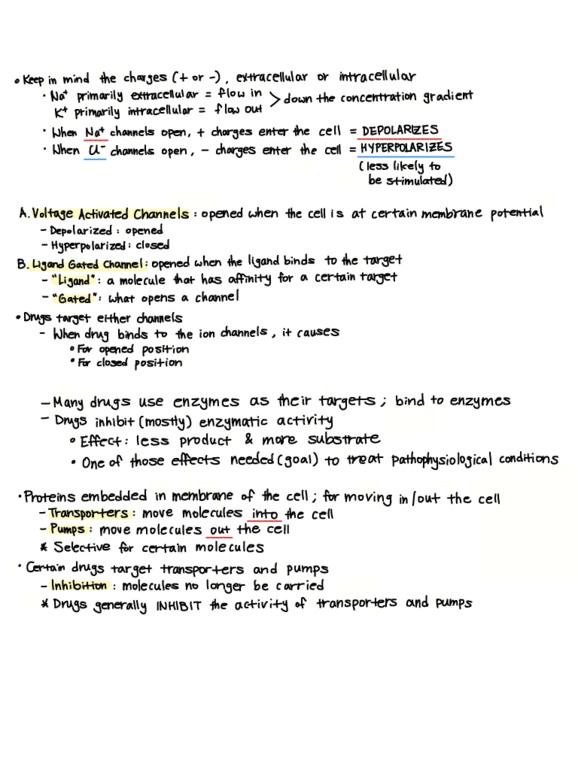 • Keep in mind the charges (+ or -), extracellular or intracellular
• Na⁺ primarily extracellular = flow in
> down the concentration gradient
K⁺ primarily intracellular = flow out
• When Na⁺ channels open, + charges enter the cell = DEPOLARIZES
• When Cl⁻ channels open, - charges enter the cell = HYPERPOLARIZES
(less likely to
be stimulated)
A. Voltage Activated Channels: opened when the cell is at certain membrane potential
- Depolarized: opened
- Hyperpolarized: closed
B. Ligand Gated Channel: opened when the ligand binds to the target
- "Ligand": a molecule that has affinity for a certain target
- "Gated": what opens a channel
• Drugs target either channels
- When drug binds to the ion channels, it causes
• For opened position
• For closed position
- Many drugs use enzymes as their targets; bind to enzymes
- Drugs inhibit (mostly) enzymatic activity
• Effect: less product & more substrate
• One of those effects needed (goal) to treat pathophysiological conditions
• Proteins embedded in membrane of the cell; for moving in/out the cell
- Transporters: move molecules into the cell
- Pumps: move molecules out the cell
* Selective for certain molecules
• Certain drugs target transporters and pumps
- Inhibition: molecules no longer be carried
* Drugs generally INHIBIT the activity of transporters and pumps